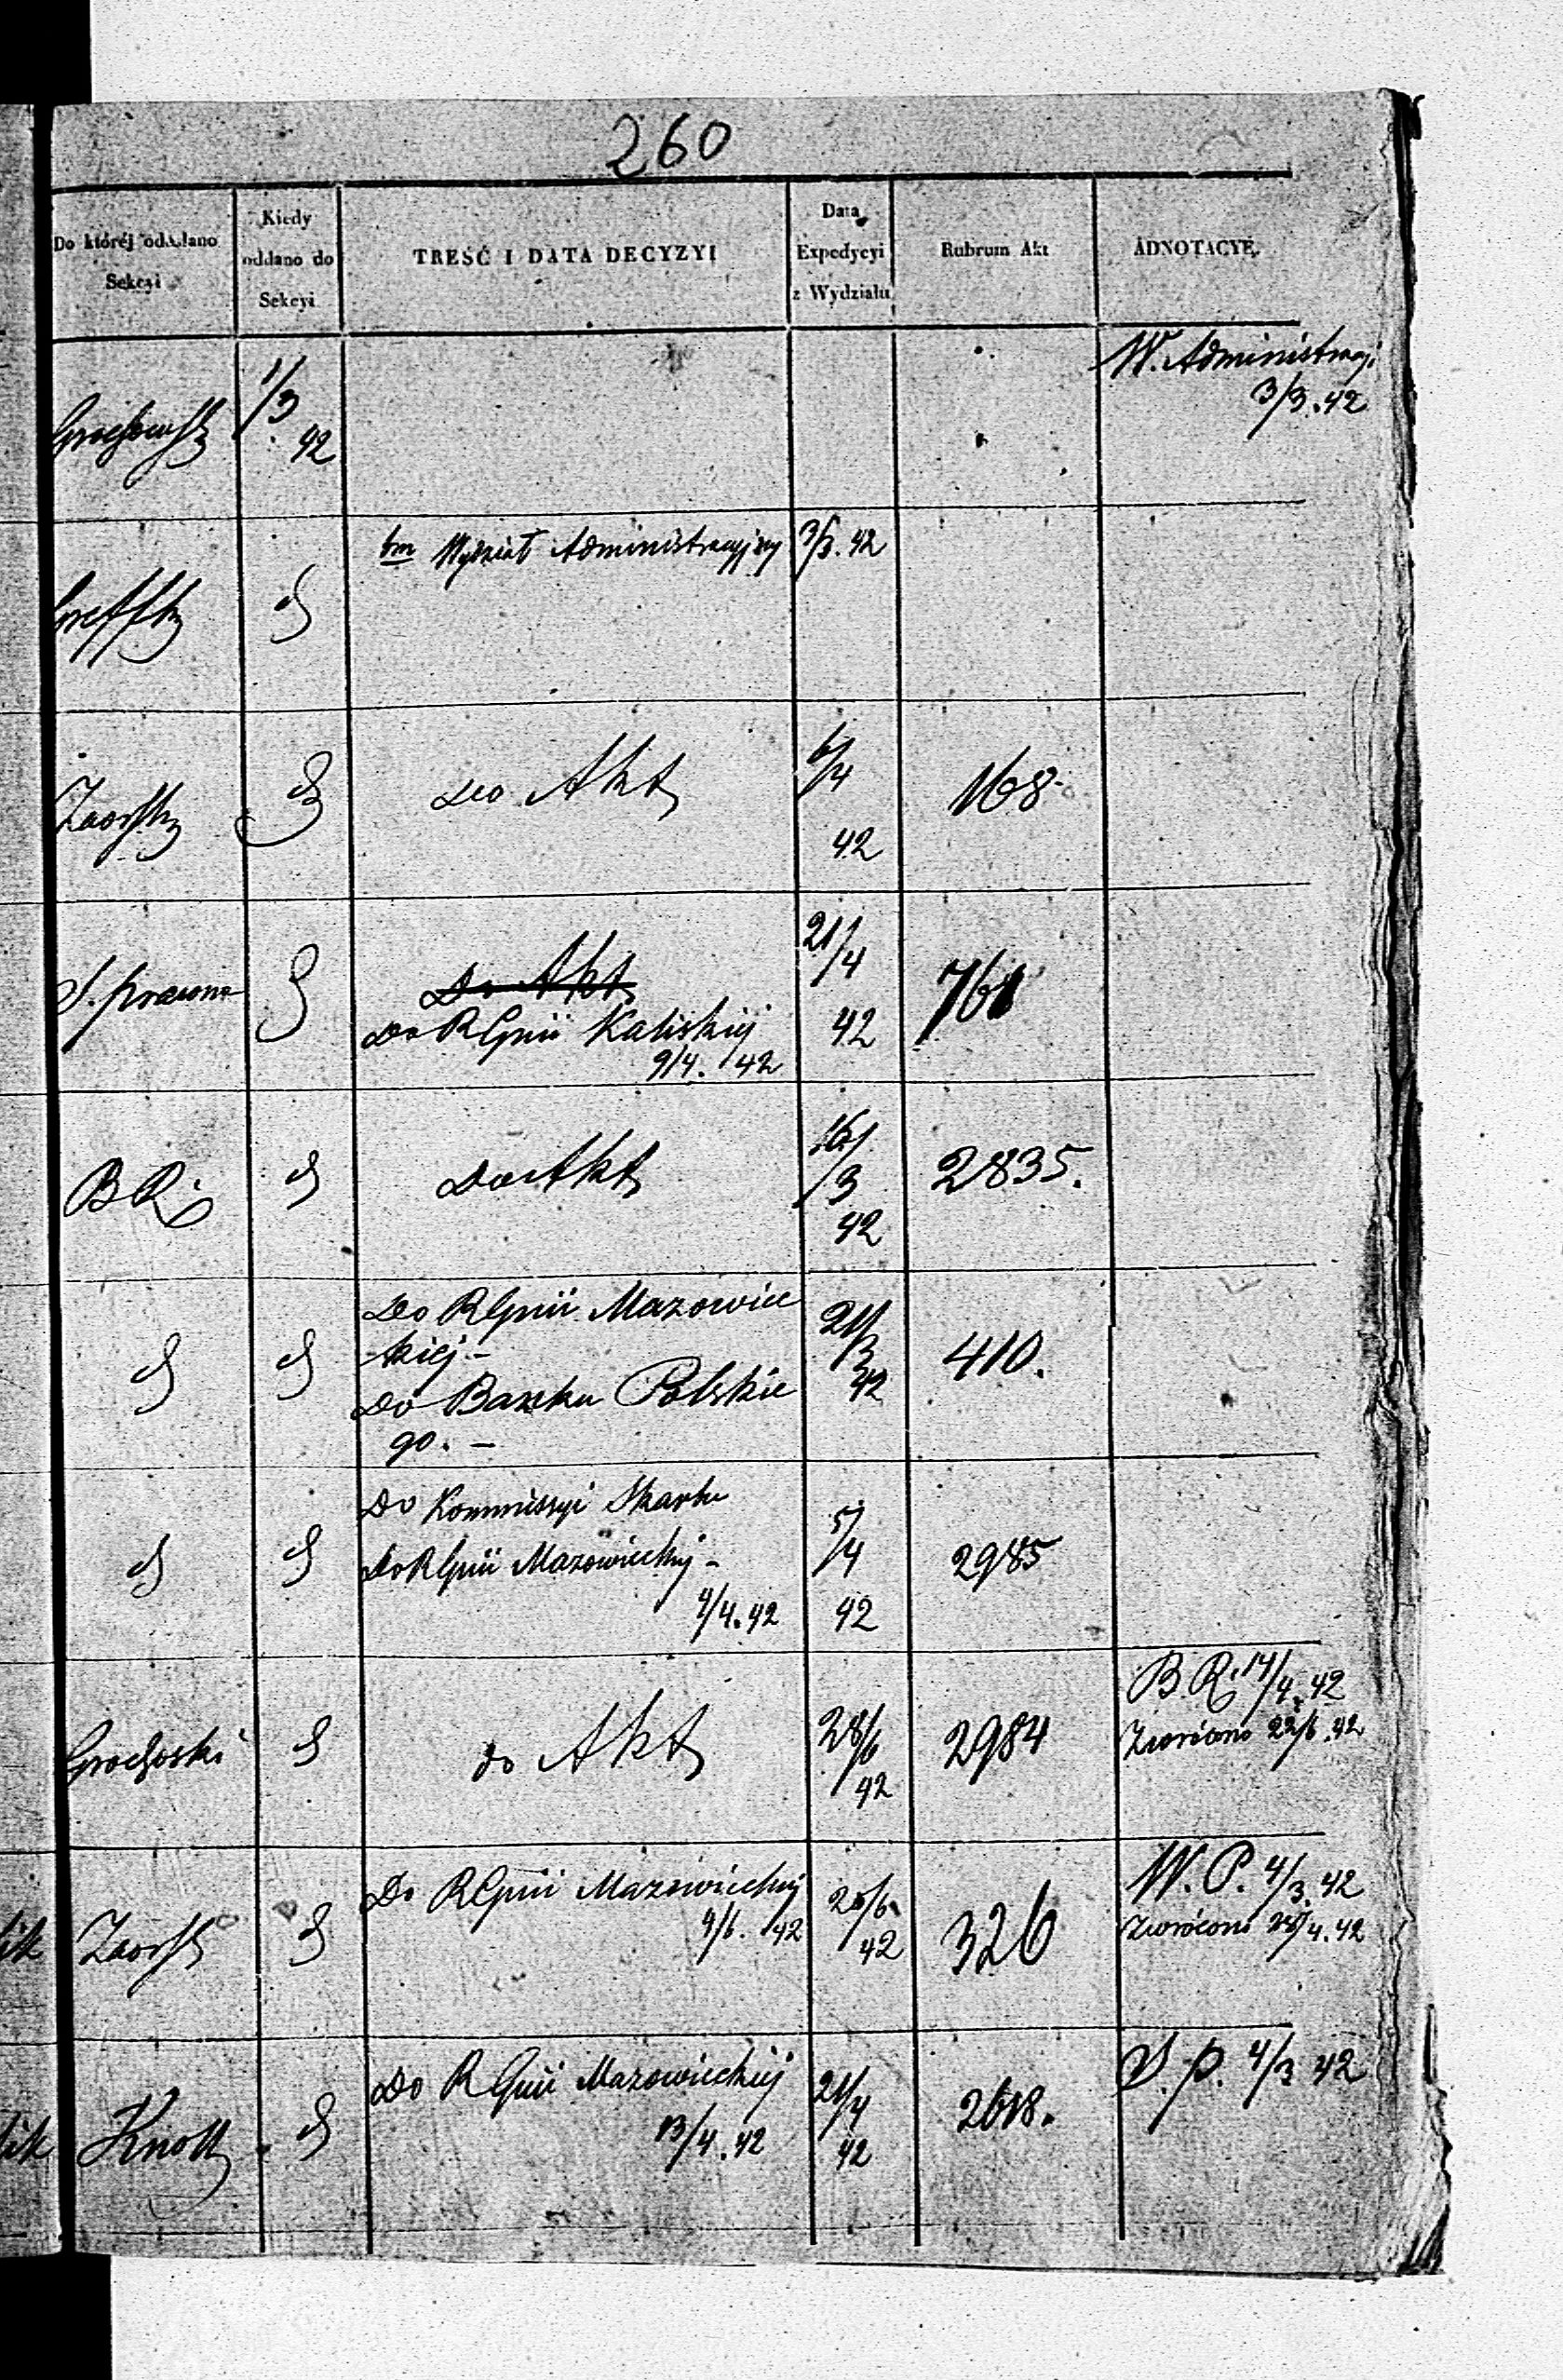 260
Do któréj oddano
Sekcyi
Kiedy
oddano do
Sekcyi
TREŚĆ I DATA DECYZYI
Data
Expedycyi
z Wydziału
Rubrum Akt
ADNOTACYE.
1/3
42
W. Administracyi
3/3.42
Wydział Administracyjny
3/3.42
do Akt
6/4
42
168
S. prawna
Do Akt
Do RGnii Kaliskiej
9/4. 42
21/4
42
761
B R.
Do Akt
16/
/3
42
2835.
Do RGnii Mazowiec
kiej -
Do Banku Polskie
go. -
21/
3
42
410.
Do Kommissyi Skarbu
Do RGnii Mazowieckiej -
4/4.42
5/4
42
2985
Grochoski
do Akt
28/6
42
2984
B.R. 14/4.42
Zwrócono 22/6.42
Do RGnii Mazowieckiej
9/6. 42
25/6
42
326
W. P. 4/3.42
Zwrócono 4.42
Knoll
Do RGnii Mazowieckiej
13/4.42
21/4
42
2618.
S. p. 4/3 42